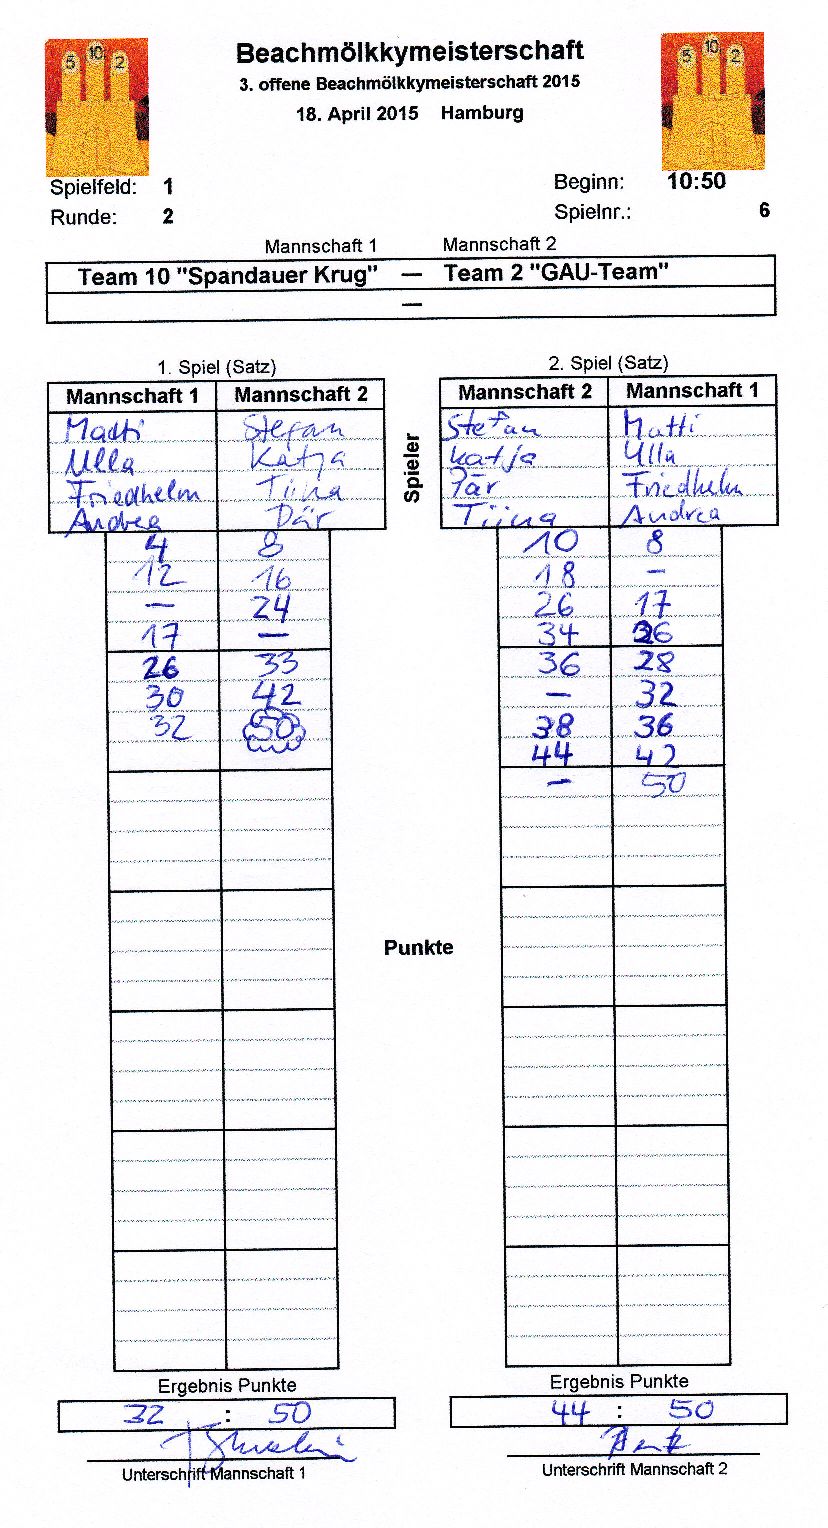 5 10 2
5 10 2
Beachmölkkymeisterschaft
3. offene Beachmölkkymeisterschaft 2015
18. April 2015 Hamburg
Spielfeld: 1
Beginn: 10:50
Runde: 2
Spielnr.: 6
Mannschaft 1 Mannschaft 2
Team 10 "Spandauer Krug" — Team 2 "GAU-Team"
—
1. Spiel (Satz) 2. Spiel (Satz)
Mannschaft 1 Mannschaft 2 Mannschaft 2 Mannschaft 1
Matti Stefan Stefan Matti
Ulla Katja Katja Ulla
Spieler
Friedhelm Tiina Pär Friedhelm
Andrea Pär Tiina Andrea
4 8 10 8
12 16 18 –
– 24 26 17
17 – 34 26
26 33 36 28
30 42 – 32
32 50 38 36
44 42
– 50
Punkte
Ergebnis Punkte Ergebnis Punkte
32 : 50 44 : 50
Unterschrift Mannschaft 1 Unterschrift Mannschaft 2